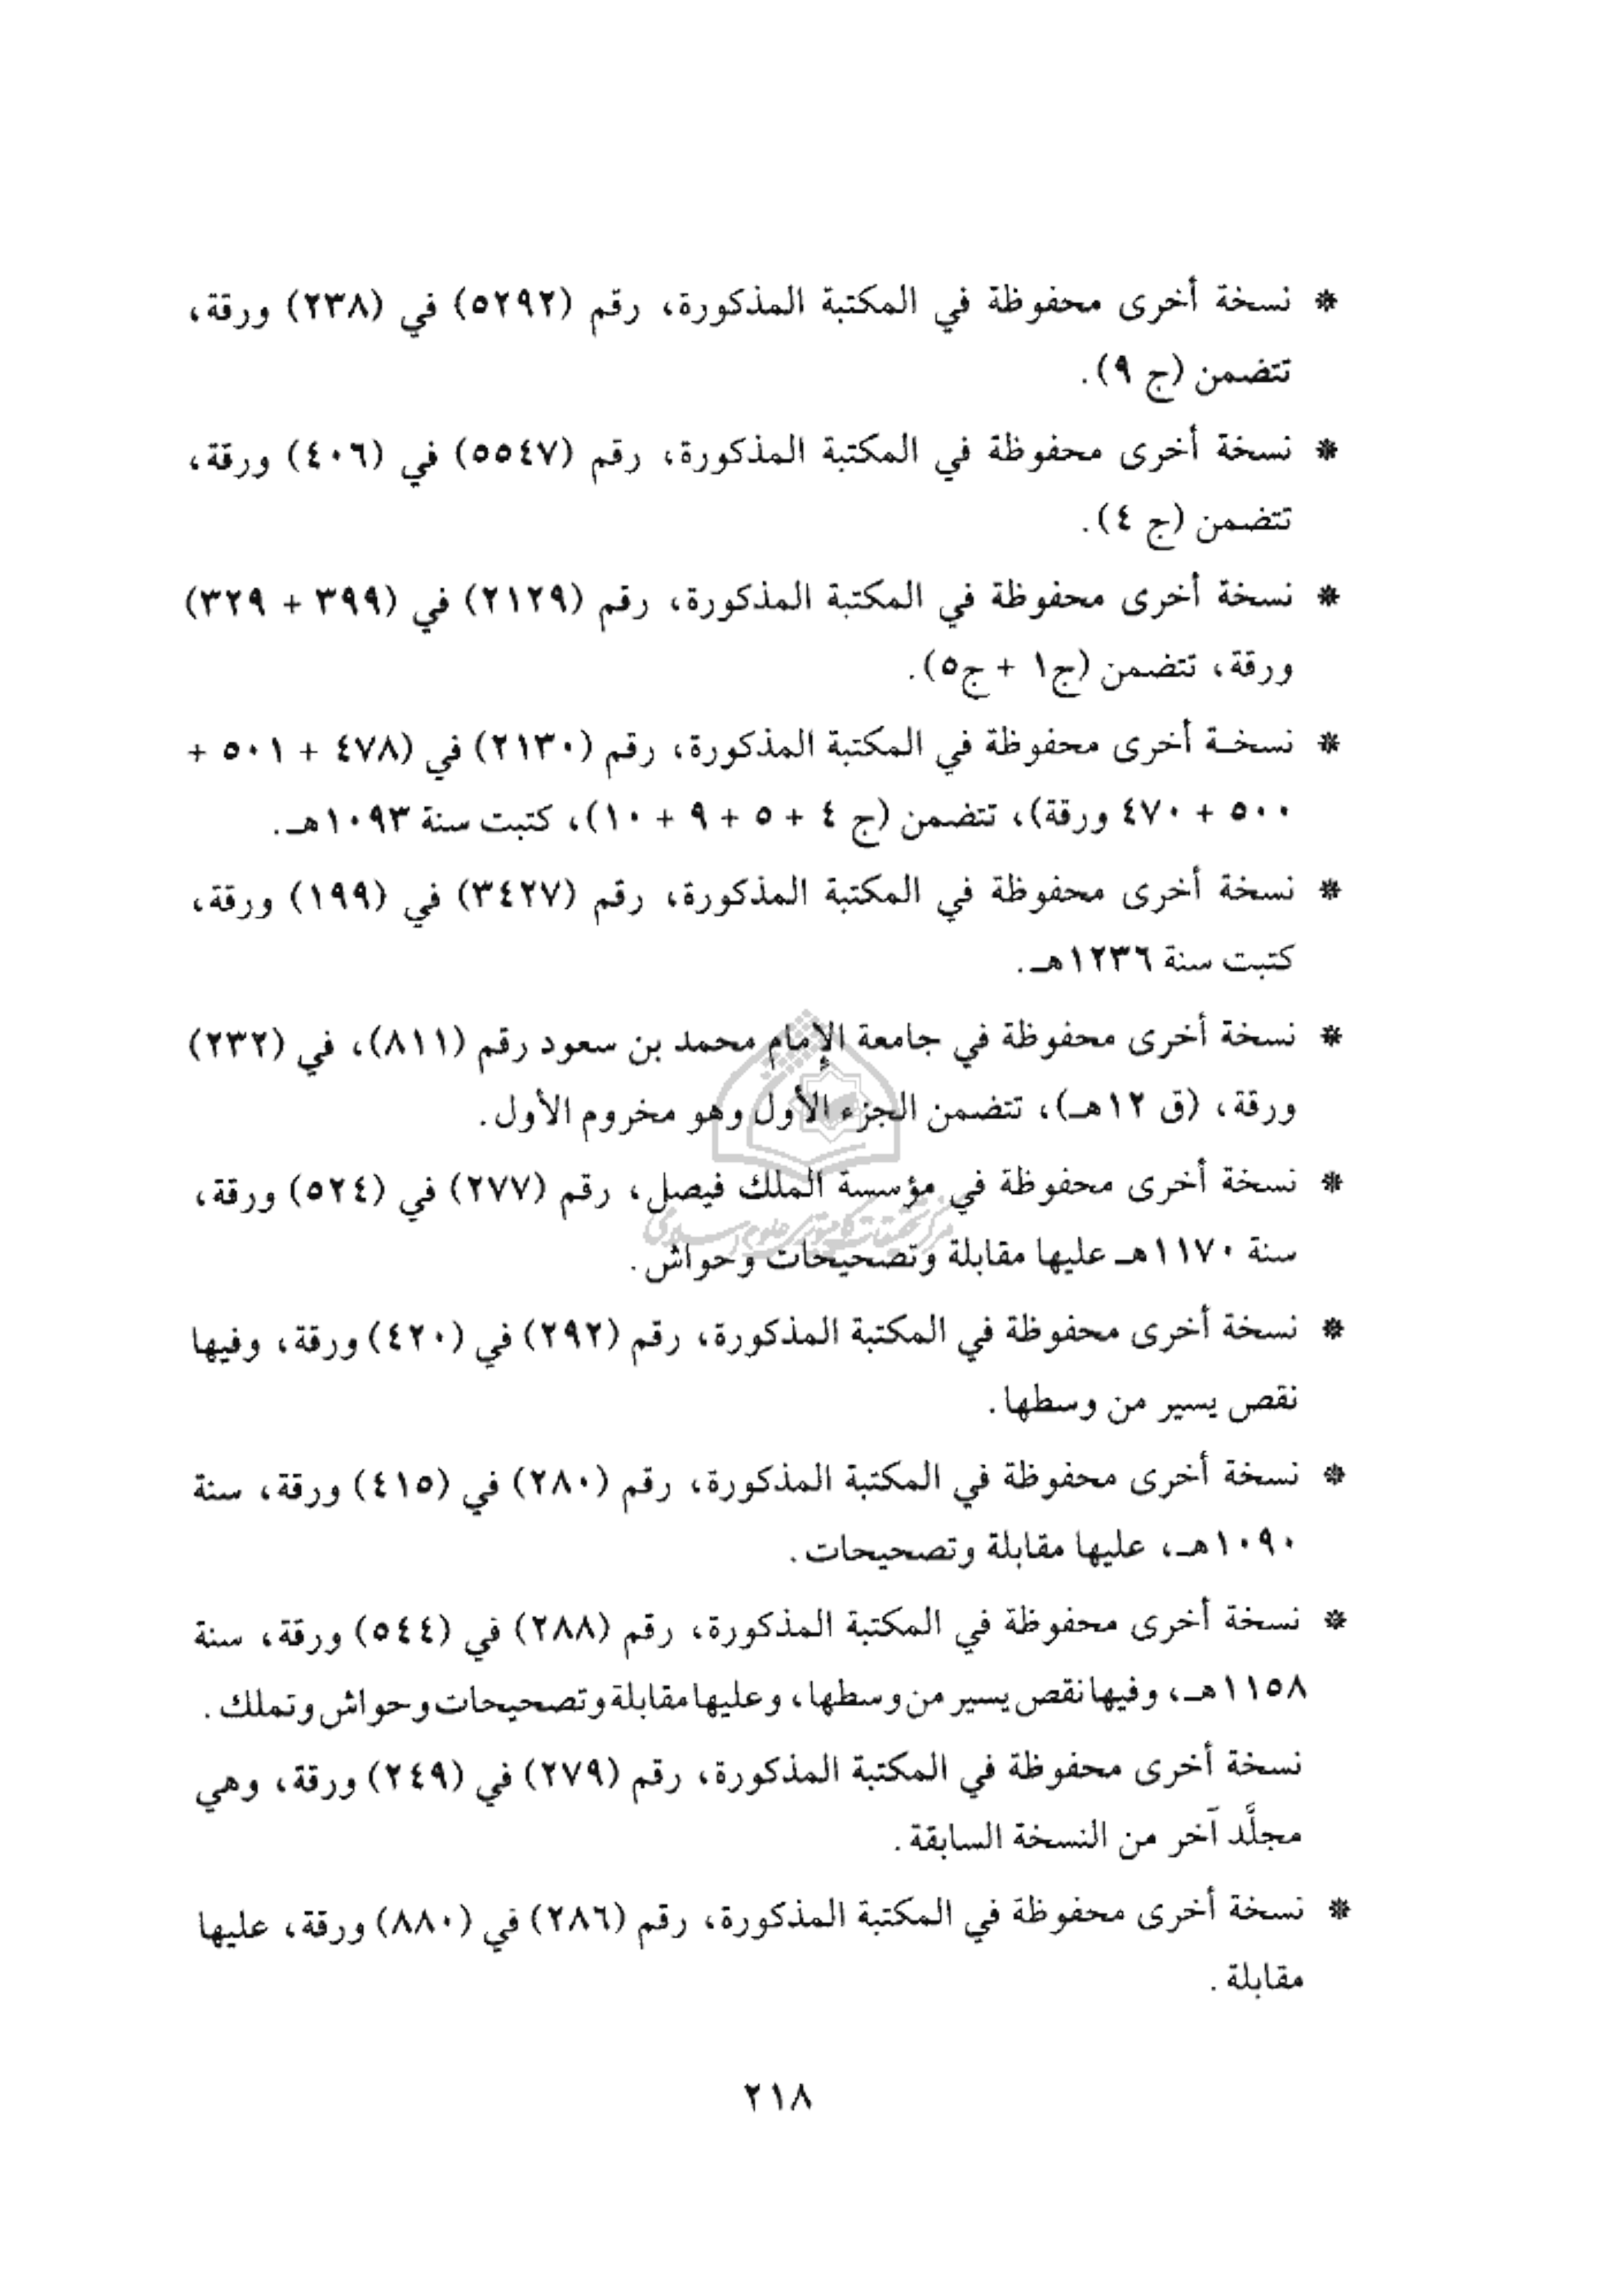 * نسخة أخرى محفوظة في المكتبة المذكورة، رقم (٥٢٩٢) في (٢٣٨) ورقة،
تتضمن (ج ٩).
* نسخة أخرى محفوظة في المكتبة المذكورة، رقم (٥٥٤٧) في (٤٠٦) ورقة،
تتضمن (ج ٤).
* نسخة أخرى محفوظة في المكتبة المذكورة، رقم (٢١٢٩) في (٣٩٩ + ٣٢٩)
ورقة، تتضمن (ج١ + ج٥).
* نسخة أخرى محفوظة في المكتبة المذكورة، رقم (٢١٣٠) في (٤٧٨ + ٥٠١ +
٥٠٠ + ٤٧٠ ورقة)، تتضمن (ج ٤ + ٥ + ٩ + ١٠)، كتبت سنة ١٠٩٣هـ.
* نسخة أخرى محفوظة في المكتبة المذكورة، رقم (٣٤٢٧) في (١٩٩) ورقة،
كتبت سنة ١٢٣٦هـ.
* نسخة أخرى محفوظة في جامعة الإمام محمد بن سعود رقم (٨١١)، في (٢٣٢)
ورقة، (ق ١٢هـ)، تتضمن الجزء الأول وهو مخروم الأول.
* نسخة أخرى محفوظة في مؤسسة الملك فيصل، رقم (٢٧٧) في (٥٢٤) ورقة،
سنة ١١٧٠هـ عليها مقابلة وتصحيحات وحواش.
* نسخة أخرى محفوظة في المكتبة المذكورة، رقم (٢٩٢) في (٤٢٠) ورقة، وفيها
نقص يسير من وسطها.
* نسخة أخرى محفوظة في المكتبة المذكورة، رقم (٢٨٠) في (٤١٥) ورقة، سنة
١٠٩٠هـ، عليها مقابلة وتصحيحات.
* نسخة أخرى محفوظة في المكتبة المذكورة، رقم (٢٨٨) في (٥٤٤) ورقة، سنة
١١٥٨هـ، وفيها نقص يسير من وسطها، وعليها مقابلة وتصحيحات وحواش وتملك.
نسخة أخرى محفوظة في المكتبة المذكورة، رقم (٢٧٩) في (٢٤٩) ورقة، وهي
مجلَّد آخر من النسخة السابقة.
* نسخة أخرى محفوظة في المكتبة المذكورة، رقم (٢٨٦) في (٨٨٠) ورقة، عليها
مقابلة.
٢١٨